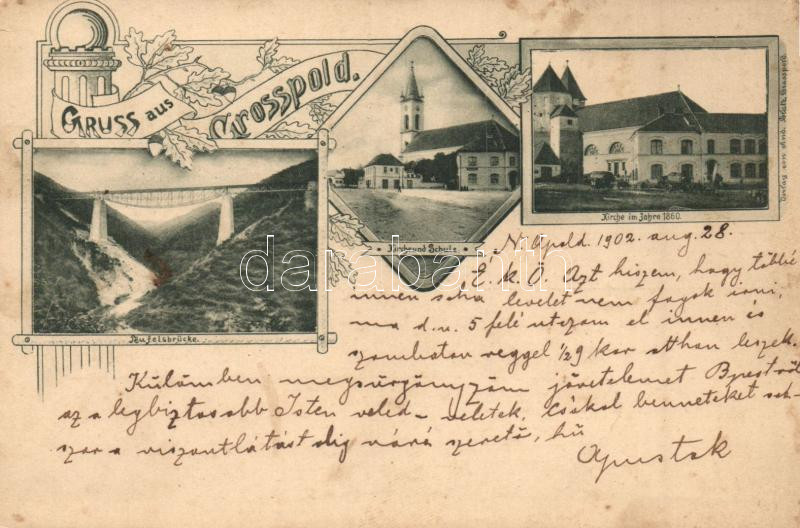 GRUSS aus
Grosspold.
Kirche und Schule.
Kirche im Jahre 1860.
Teufelsbrücke.
Verlag von And. Grosspold.
darabanth
N. Apold. 1902. aug. 28.
É. K. Ö. Azt hiszem, hogy többé
innen soha levelet nem fogok írni,
ma d. u. 5 felé utazom el innen és
szombaton reggel 1/29 kor otthon leszek.
Különben megsürgönyzöm jövetelemet Bpestről
az a legbiztosabb Isten veled - veletek, Csókol benneteket sok-
szor a viszontlátásig váró szerető, hű
Apustok